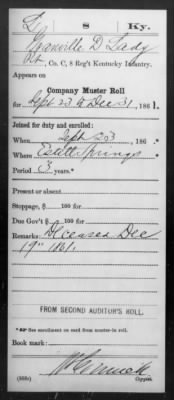 L | 8 | Ky.
Granville D Lady
Pvt, Co. C, 8 Reg't Kentucky Infantry.
Appears on
Company Muster Roll
for Sept 23 to Dec 31, 1861.
Joined for duty and enrolled:
When Sept 23, 186 .*
Where Estill Springs
Period 3 years.*
Present or absent
Stoppage, $ 100 for
Due Gov't $ 100 for
Remarks: Deceased Dec
19th 1861.
FROM SECOND AUDITOR'S ROLL.
*☞ See enrollment on card from muster-in roll.
Book mark:
(358c) Copyist.